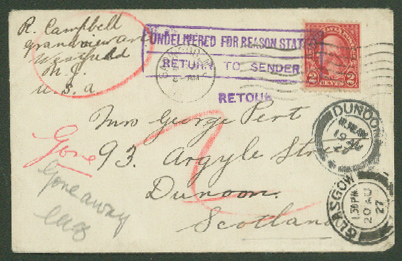 R. Campbell
Grandview ave
Westfield
N.J.
U.S.A
UNDELIVERED FOR REASON STATED
RETURN TO SENDER
RETOUR
2 CENTS 2
Mrs George Pert
93. Argyle St
Dunoon
Scotland
Gone
Gone away
DUNOON
19 AU
27
GLASGOW
1.30PM
20 AU
27